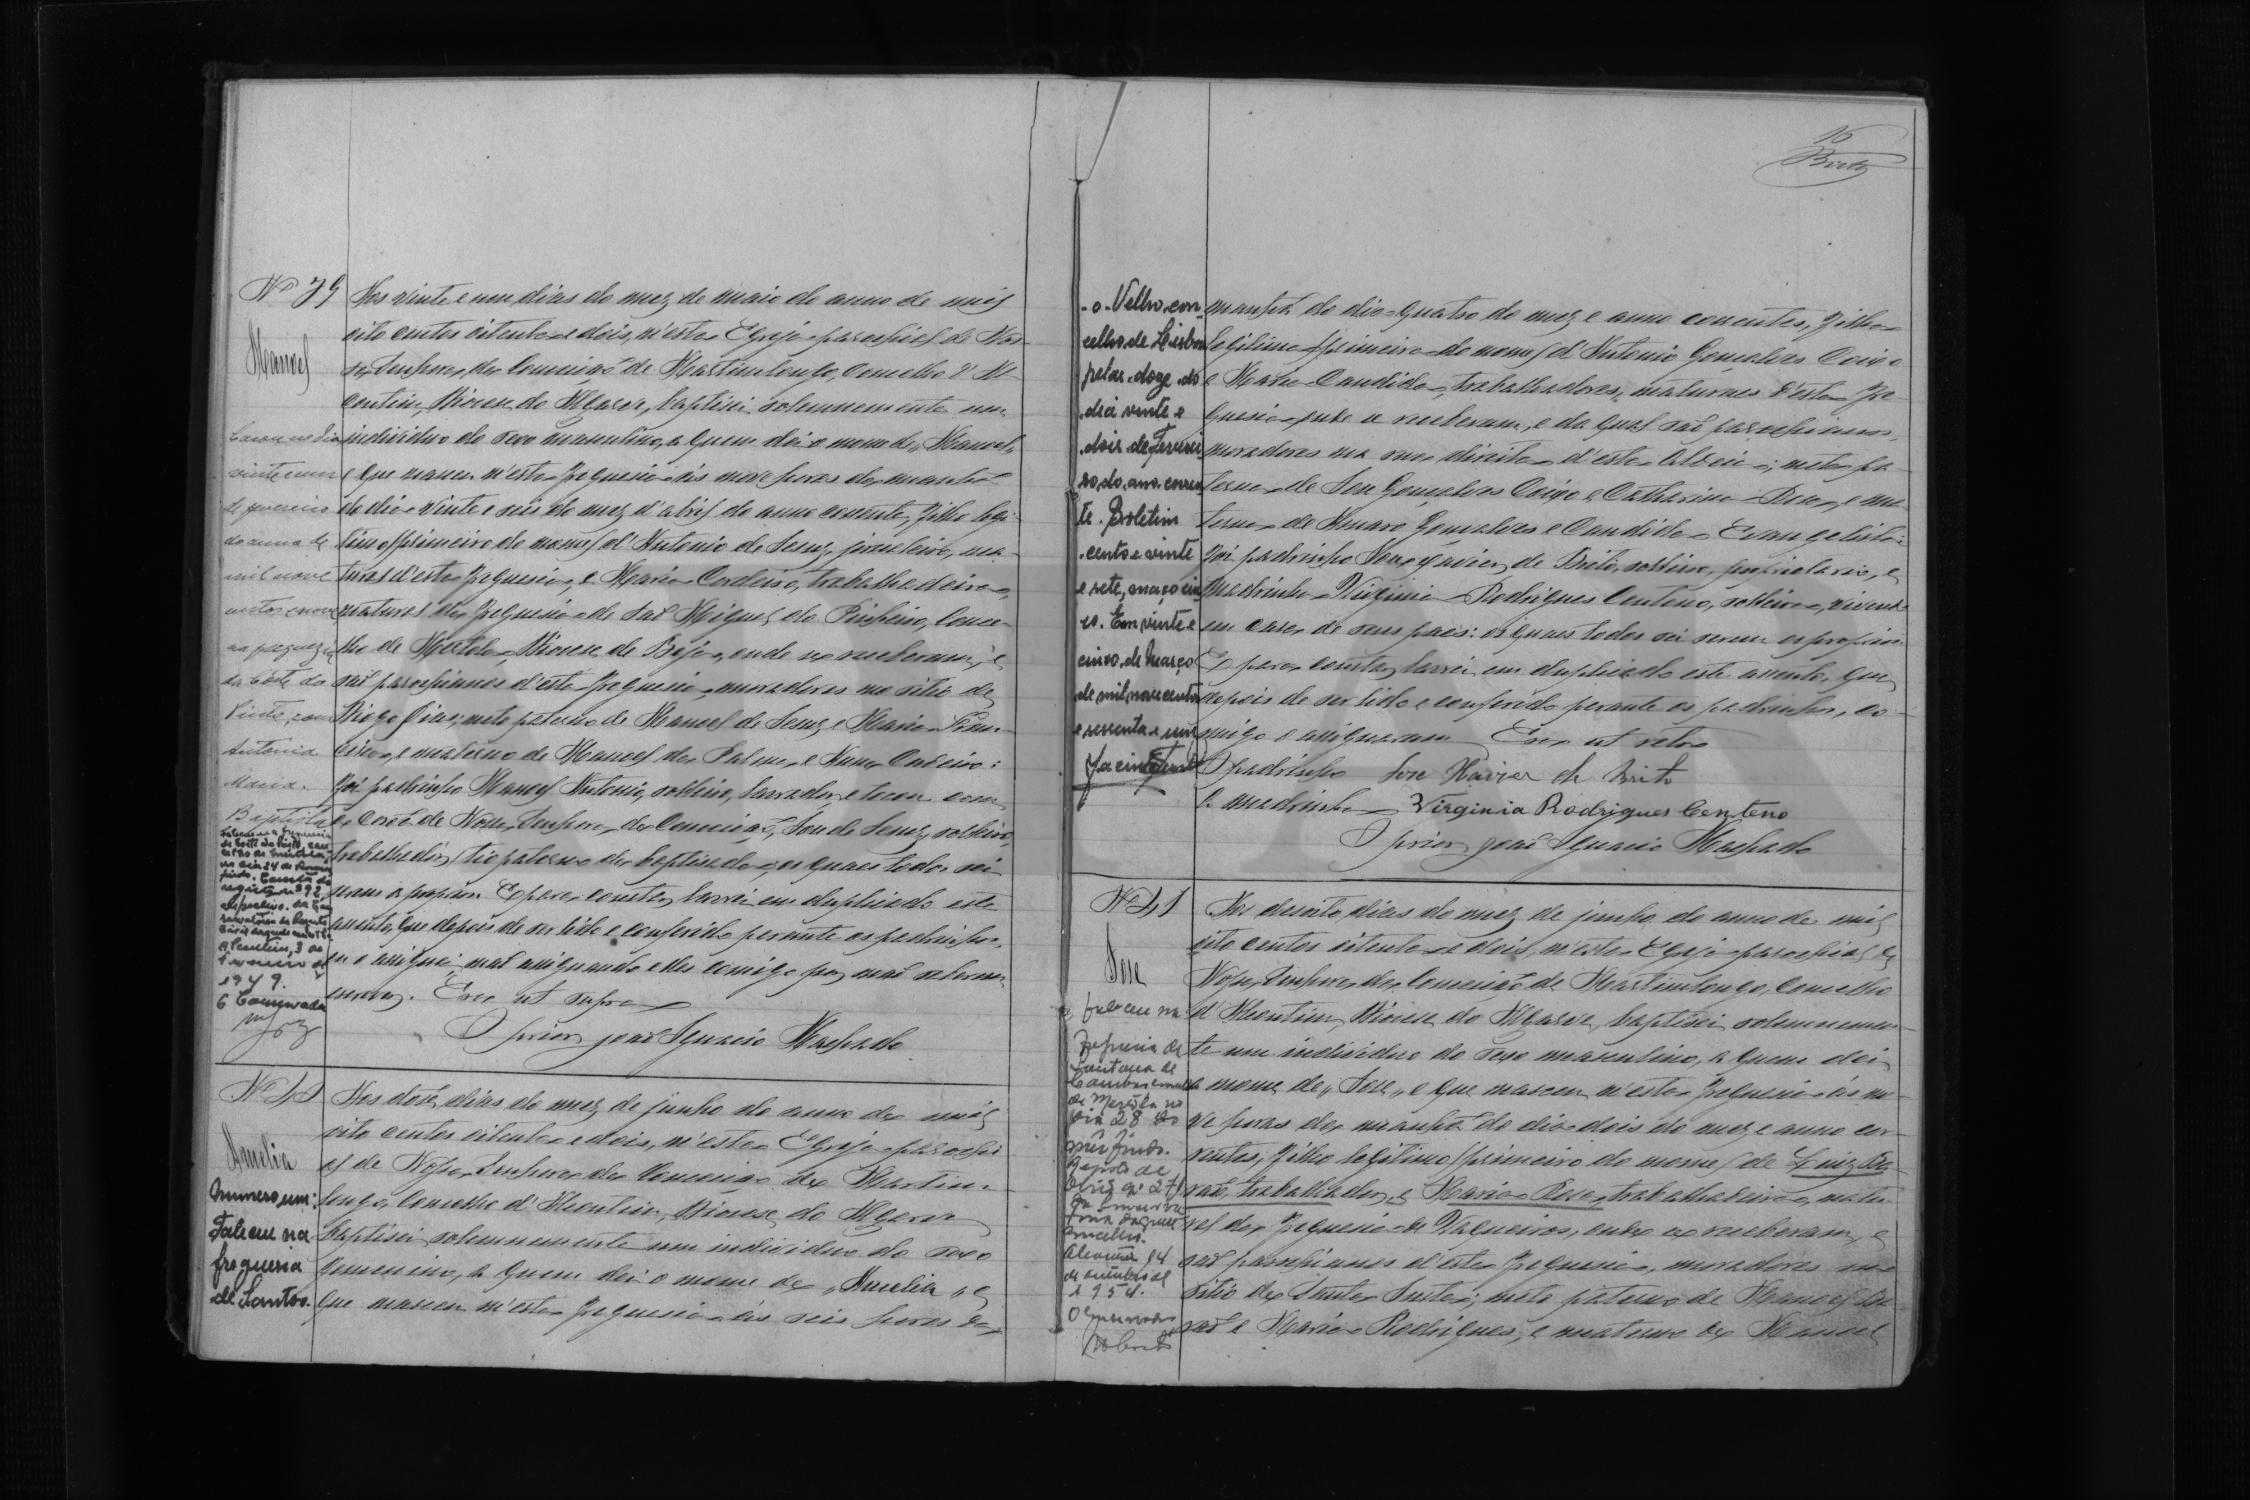 Nº 39
Manoel
Aos vinte e um dias do mez de maio do anno de mil
oito centos oitenta e dois, n'esta Egreja parochial de Nos-
sa Senhora da Conceição de Martimlongo, Concelho d'Al-
coutim, Diocese do Algarve, baptisei solemnemente um
individuo do sexo masculino, a quem dei o nome de "Manoel"
e que nasceu n'esta freguesia ás nove horas da manhã
do dia vinte e seis do mez d'abril do anno corrente, filho legi-
timo (primeiro do nome) d'Antonio de Souza, jornaleiro, na-
tural d'esta freguesia, e Maria Cordeiro, trabalhadeira,
natural da freguesia de São Miguel do Pinheiro, Conce-
lho de Mertola, Diocese de Beja, onde se receberam, e
são parochianos d'esta freguesia, moradores no sitio de
Diogo Dias; neto paterno de Manoel de Souza e Maria
e materno de Manoel da Palma e Anna
Foi padrinho Manoel Antonio, solteiro, lavrador, e tocou com
a Corôa de Nossa Senhora da Conceição, José de Souza, solteiro,
trabalhador, tio paterno do baptisado, os quaes todos sei
serem os proprios. E para constar, lavrei em duplicado este
assento, que depois de ser lido e conferido perante os padrinhos,
eu o assignei, não assignando elles comigo por não saberem
escrever. Era ut supra
O prior, João Ignacio Machado
Casou no dia
vinte e um
de fevereiro
do anno de
mil nove
centos e nove
na freguezia
da Côrte do
Pinto, com
Antonia
Maria
Baptista
Faleceu na freguesia
de Corte do Pinto, con-
celho de Mertola,
no dia 24 de
findo.
registo nº 392
1949.
O Conservador
Nº 40
Amelia
Aos doze dias do mez de junho do anno de mil
oito centos oitenta e dois, n'esta Egreja parochi-
al de Nossa Senhora da Conceição de Martim-
longo, Concelho d'Alcoutim, Diocese do Algarve
baptisei solemnemente um individuo do sexo
femenino, a quem dei o nome de "Amelia" e
que nasceu n'esta freguesia ás seis horas da
Numero um:
Faleceu na
freguesia
de Santos-
16
Brito
-o-Velho con-
celho de Lisboa
pelas doze do
dia vinte e
dois de Feverei-
ro, do ano corren-
te. Boletim
cento e vinte
e sete, maço cin-
co. Em vinte e
cinco de Março
de mil novecentos
e sessenta e um
manhã do dia quatro do mez e anno correntes, filha
legitima (primeira do nome) d'Antonio Gonçalves
e Maria Candida, trabalhadores, naturaes d'esta fre-
guesia onde se receberam, e da qual são parochianos,
moradores na rua direita d'esta Aldeia; neta pa-
terna de José Gonçalves e Catharina Rosa, e ma-
terna de Amaro Gonçalves e Candida Evangelista:
Foi padrinho José Xavier de Brito, solteiro, proprietario, e
Madrinha Virginia Rodrigues Centeno, solteira, vivendo
em casa de seus paes: os quaes todos sei serem os proprios.
E para constar lavrei em duplicado este assento, que
depois de ser lido e conferido perante os padrinhos, co-
migo o assignaram. Era ut retro
O padrinho José Xavier de Brito
A madrinha Virginia Rodrigues Centeno
O prior, João Ignacio Machado
Nº 41
José
Aos dezoito dias do mez de junho do anno de mil
oito centos oitenta e dois, n'esta Egreja parochial de
Nossa Senhora da Conceição de Martimlongo, Concelho
d'Alcoutim, Diocese do Algarve, baptisei solemnemen-
te um individuo do sexo masculino, a quem dei
o nome de "José" e que nasceu n'esta freguesia ás no-
ve horas da manhã do dia dois do mez e anno cor-
rentes, filho legitimo (primeiro do nome) de Luiz
trabalhador, e Maria Rosa, trabalhadeira, natu-
ral da freguesia de Vaqueiros, onde se receberam, e
são parochianos d'esta freguesia, moradores no
sitio de Santa Justa; neto paterno de Manoel
e Maria Rodrigues, e materno de Manoel
Faleceu na
freguesia de
Santana de
Cambas concelho
de Mertola no
dia 28 do
mês findo.
Alcoutim 14
de outubro de
1954.
O Conservador